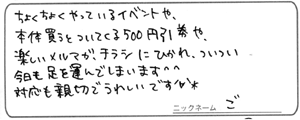 ちょくちょくやっているイベントや、
本体買うとついてくる500円引券や
楽しいメルマガ、チラシにひかれ、ついつい
今日も足を運んでしまいます^^
対応も親切でうれしいです(^^)*
ニックネーム ご